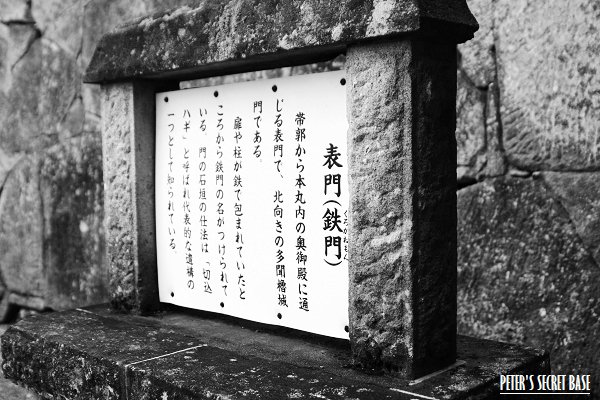 表門(鉄門)
くろがねもん
帯郭から本丸内の奥御殿に通
じる表門で、北向きの多聞櫓城
門である。
扉や柱が鉄で包まれていたと
ころから鉄門の名がつけられて
いる。門の石垣の仕法は「切込
ハギ」と呼ばれ代表的な遺構の
一つとして知られている。
PETER'S SECRET BASE